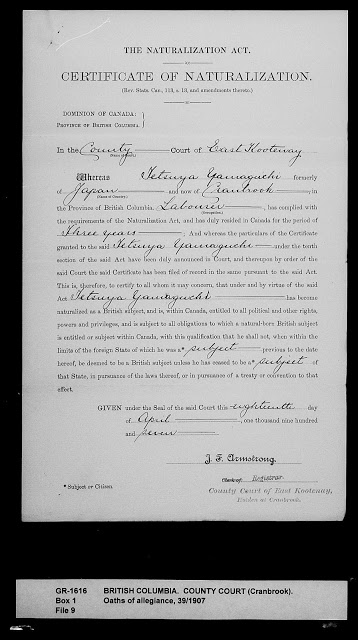 THE NATURALIZATION ACT.
CERTIFICATE OF NATURALIZATION.
(Rev. Stats. Can., 113, s. 15, and amendments thereto.)
DOMINION OF CANADA:
PROVINCE OF BRITISH COLUMBIA.
In the County Court of East Kootenay
(Name of Court).
Whereas Tetsuya Yamaguchi formerly
of Japan and now of Cranbrook, in
(Name of Country)
the Province of British Columbia, Labourer, has complied with
(Occupation)
the requirements of the Naturalization Act, and has duly resided in Canada for the period of
three years; And whereas the particulars of the Certificate
granted to the said Tetsuya Yamaguchi under the tenth
section of the said Act have been duly announced in Court, and thereupon by order of the
said Court the said Certificate has been filed of record in the same pursuant to the said Act.
This is, therefore, to certify to all whom it may concern, that under and by virtue of the said
Act Tetsuya Yamaguchi has become
naturalized as a British subject, and is, within Canada, entitled to all political and other rights,
powers and privileges, and is subject to all obligations to which a natural-born British subject
is entitled or subject within Canada, with this qualification that he shall not, when within the
limits of the foreign State of which he was a* subject previous to the date
hereof, be deemed to be a British subject unless he has ceased to be a* subject of
that State, in pursuance of the laws thereof, or in pursuance of a treaty or convention to that
effect.
GIVEN under the Seal of the said Court this eighteenth day
of April, one thousand nine hundred
and seven
J. F. Armstrong.
Registrar
County Court of East Kootenay,
Holden at Cranbrook.
* Subject or Citizen.
GR-1616 BRITISH COLUMBIA. COUNTY COURT (Cranbrook).
Box 1 Oaths of allegiance, 39/1907
File 9